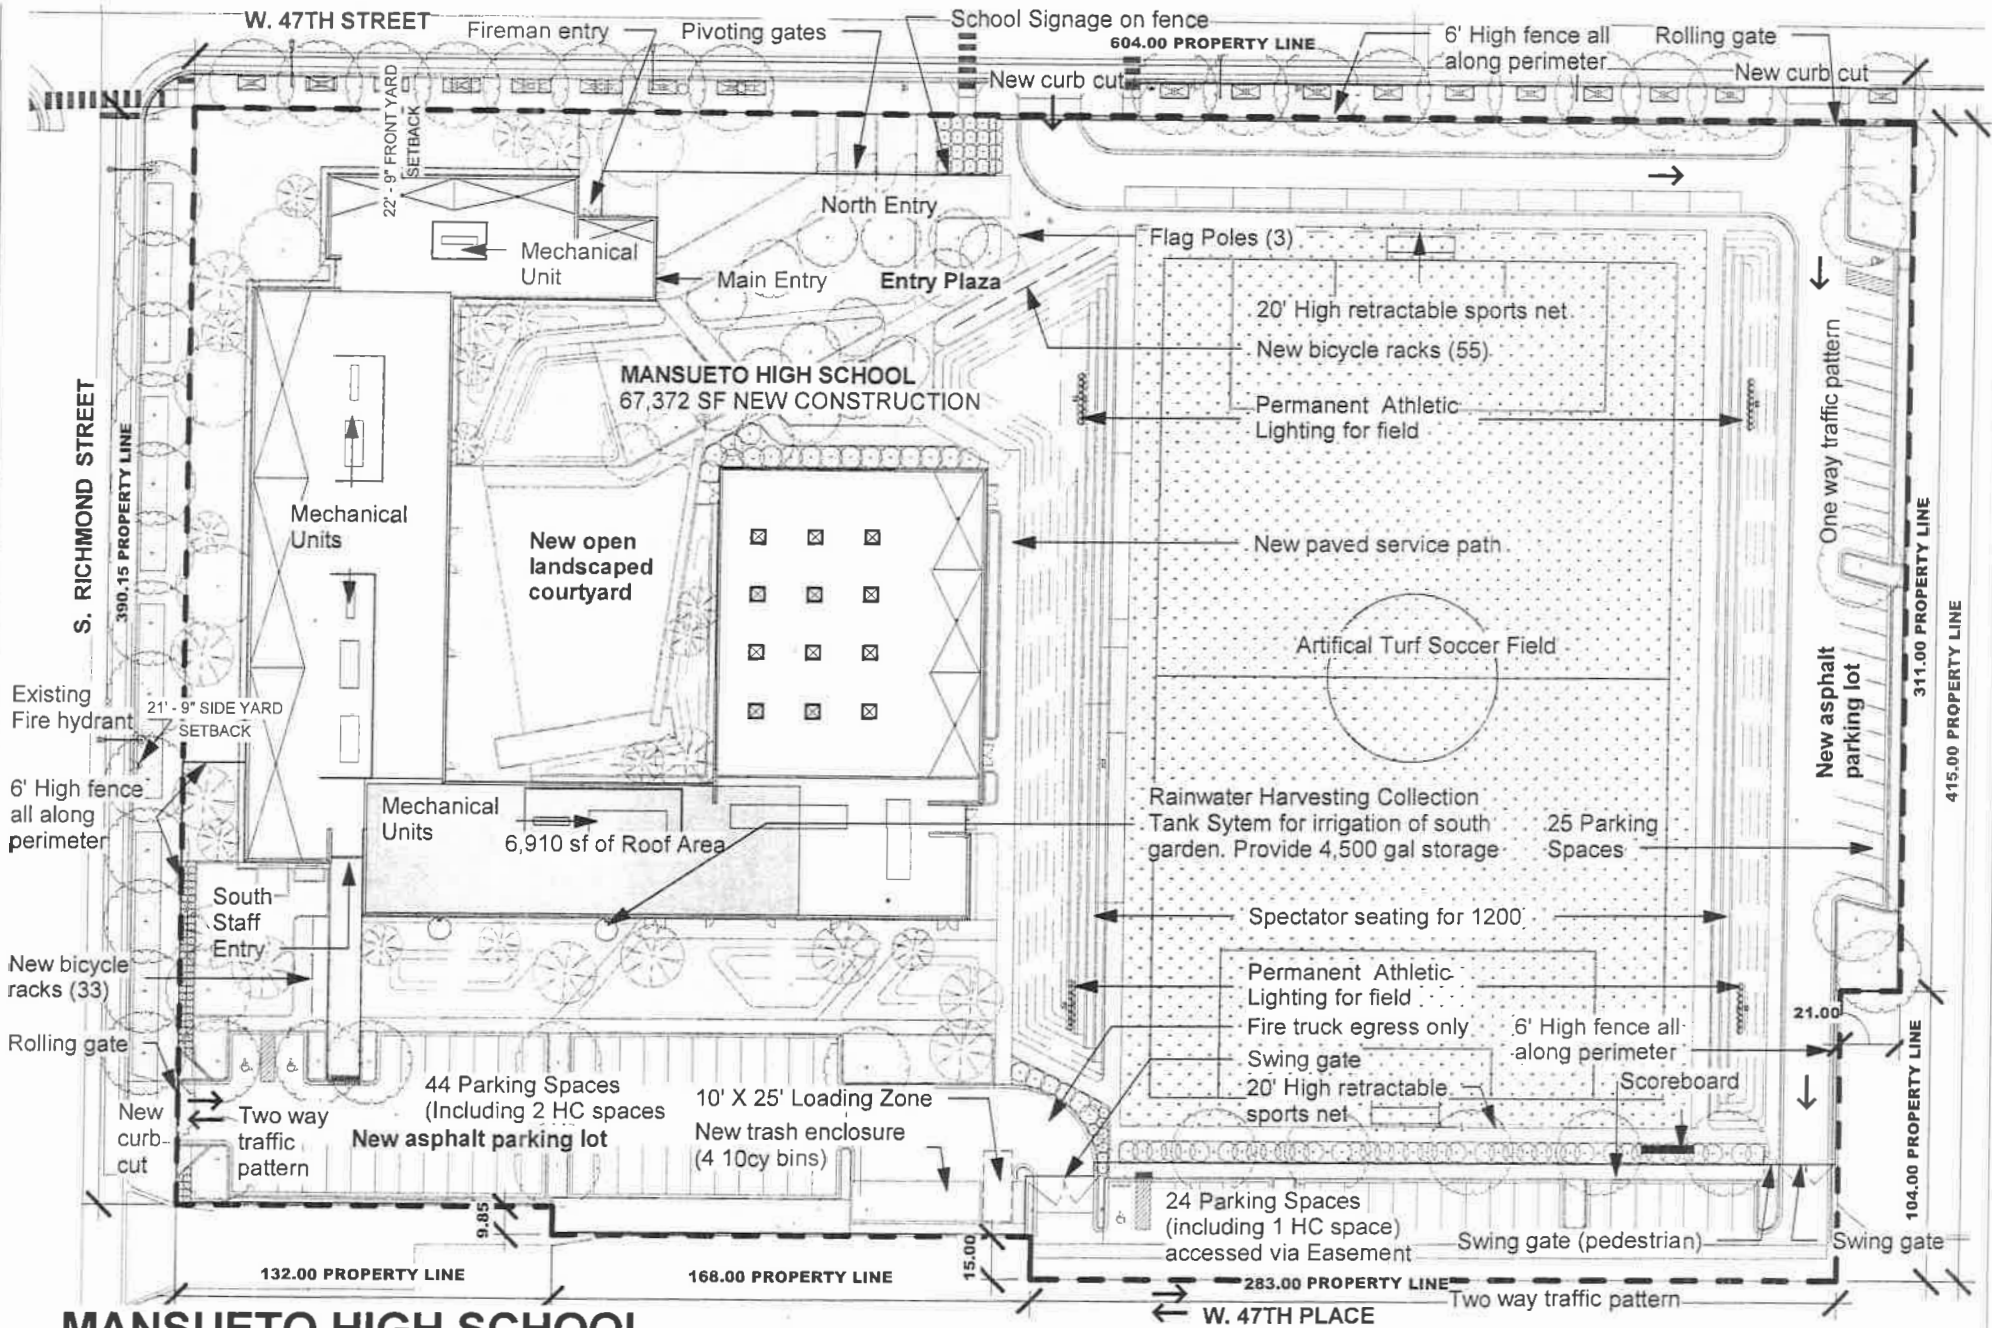 W. 47TH STREET
Fireman entry
Pivoting gates
School Signage on fence
604.00 PROPERTY LINE
6' High fence all
along perimeter
Rolling gate
New curb cut
New curb cut
22' - 9" FRONT YARD
SETBACK
North Entry
Flag Poles (3)
Mechanical
Unit
Main Entry
Entry Plaza
20' High retractable sports net
New bicycle racks (55)
MANSUETO HIGH SCHOOL
67,372 SF NEW CONSTRUCTION
Permanent Athletic
Lighting for field
One way traffic pattern
S. RICHMOND STREET
390.15 PROPERTY LINE
Mechanical
Units
New open
landscaped
courtyard
New paved service path
Artifical Turf Soccer Field
311.00 PROPERTY LINE
415.00 PROPERTY LINE
New asphalt
parking lot
Existing
Fire hydrant
21' - 9" SIDE YARD
SETBACK
6' High fence
all along
perimeter
Mechanical
Units
6,910 sf of Roof Area
Rainwater Harvesting Collection
Tank Sytem for irrigation of south
garden. Provide 4,500 gal storage
25 Parking
Spaces
South
Staff
Entry
Spectator seating for 1200
New bicycle
racks (33)
Permanent Athletic
Lighting for field
Fire truck egress only
6' High fence all
along perimeter
21.00
Rolling gate
Swing gate
20' High retractable
sports net
Scoreboard
104.00 PROPERTY LINE
New
curb
cut
Two way
traffic
pattern
44 Parking Spaces
(Including 2 HC spaces
New asphalt parking lot
10' X 25' Loading Zone
New trash enclosure
(4 10cy bins)
24 Parking Spaces
(including 1 HC space)
accessed via Easement
Swing gate (pedestrian)
Swing gate
9.85
15.00
132.00 PROPERTY LINE
168.00 PROPERTY LINE
283.00 PROPERTY LINE
Two way traffic pattern
W. 47TH PLACE
MANSUETO HIGH SCHOOL